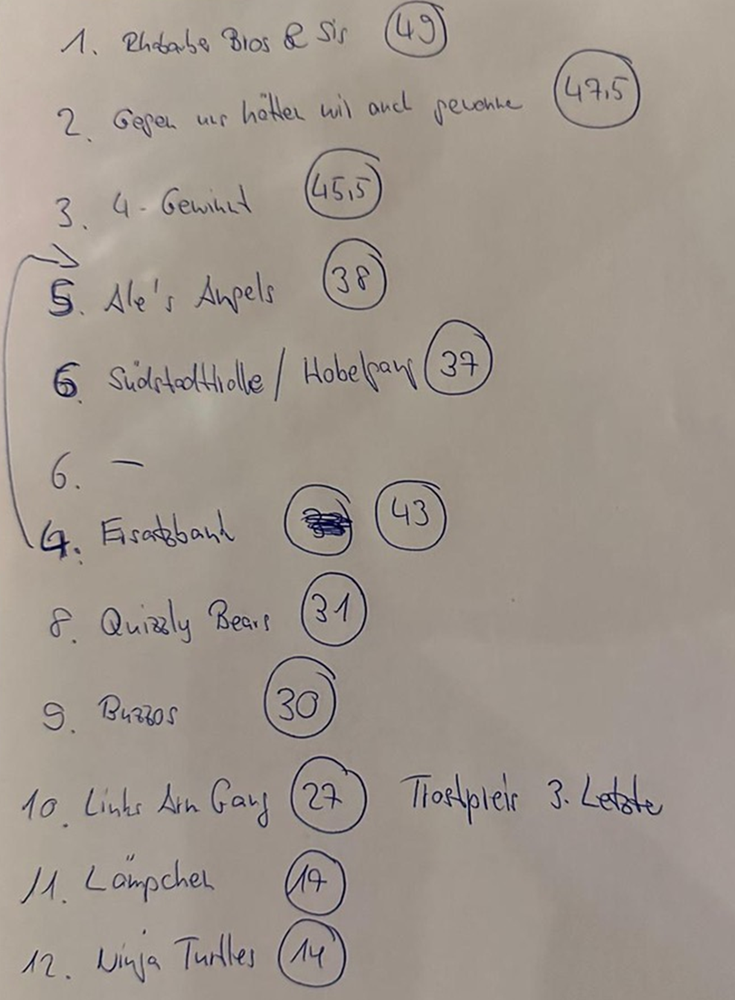 1. Rhabarber Bros & Sis 49
2. Gegen uns hätten wir auch gewonne 47,5
3. 4-Gewinnt 45,5
5. Ale's Angels 38
6. Südstadttrolle / Hobelgang 37
6. —
4. Ersatzbank 43
8. Quizzly Bears 31
9. Buzzos 30
10. Links Arm Gang 27 Trostpreis 3. Letzte
11. Lämpchen 17
12. Ninja Turtles 14